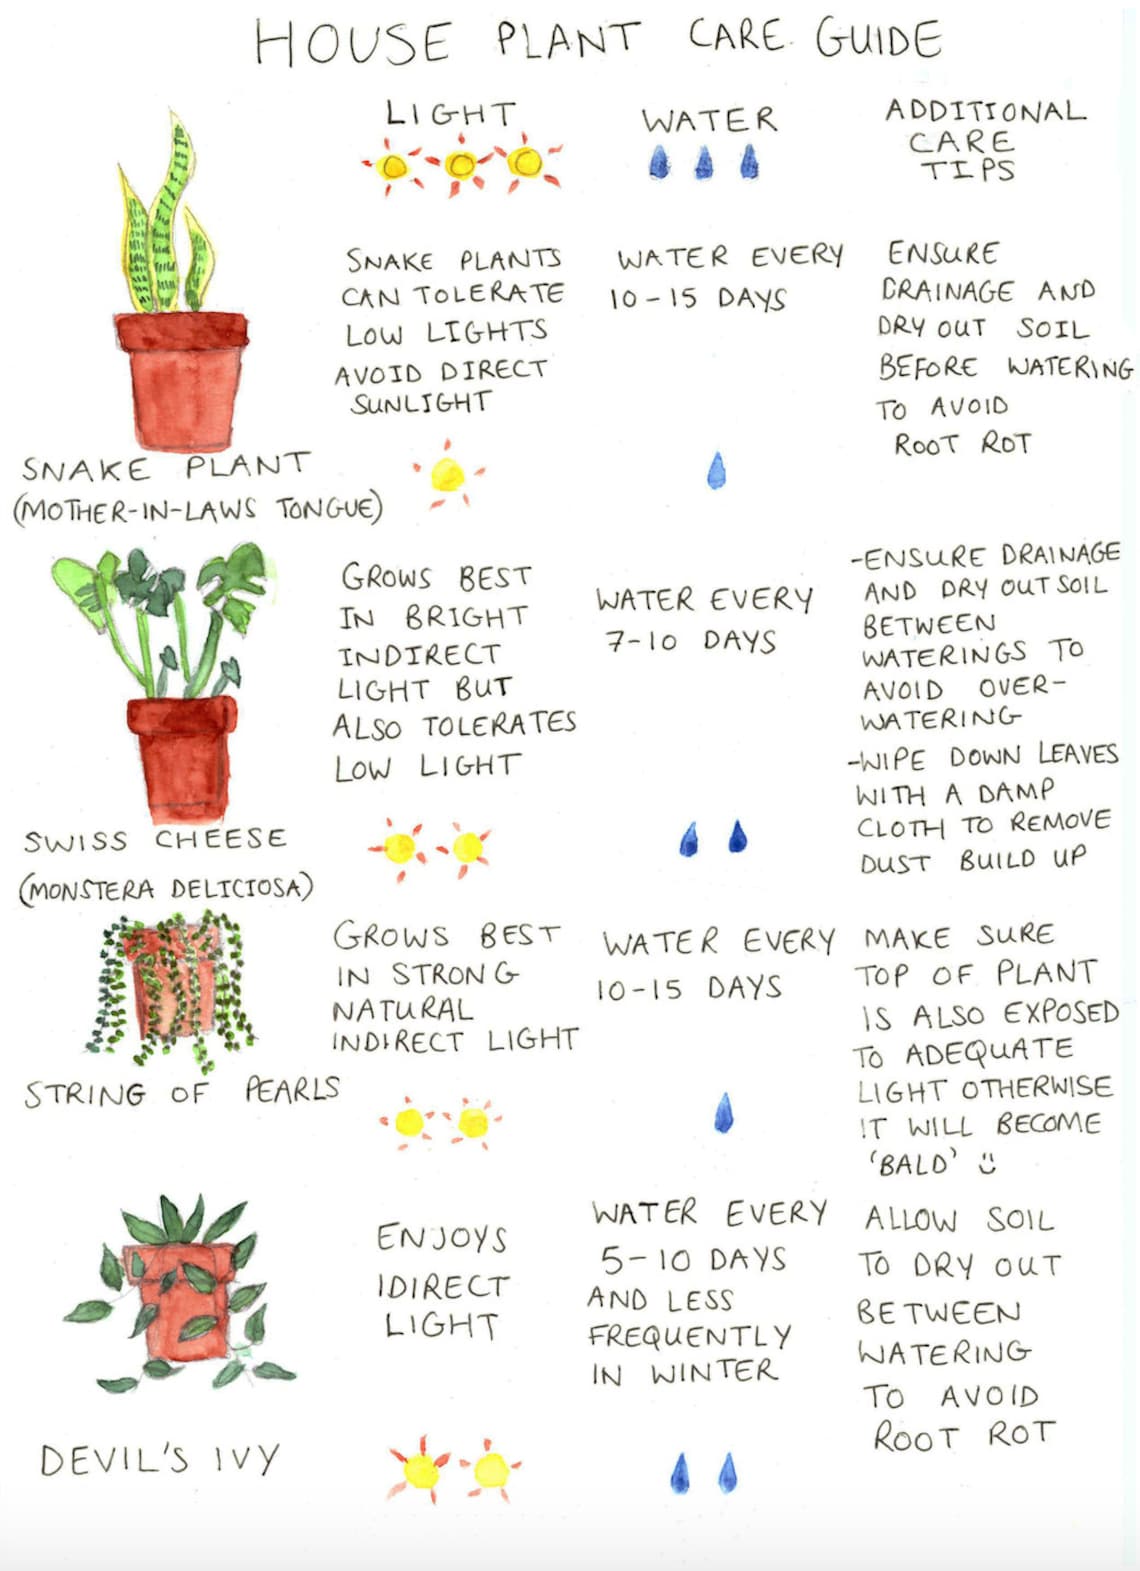 HOUSE PLANT CARE GUIDE
LIGHT
WATER
ADDITIONAL
CARE
TIPS
SNAKE PLANT
(MOTHER-IN-LAWS TONGUE)
SNAKE PLANTS
CAN TOLERATE
LOW LIGHTS
AVOID DIRECT
SUNLIGHT
WATER EVERY
10-15 DAYS
ENSURE
DRAINAGE AND
DRY OUT SOIL
BEFORE WATERING
TO AVOID
ROOT ROT
SWISS CHEESE
(MONSTERA DELICIOSA)
GROWS BEST
IN BRIGHT
INDIRECT
LIGHT BUT
ALSO TOLERATES
LOW LIGHT
WATER EVERY
7-10 DAYS
-ENSURE DRAINAGE
AND DRY OUT SOIL
BETWEEN
WATERINGS TO
AVOID OVER-
WATERING
-WIPE DOWN LEAVES
WITH A DAMP
CLOTH TO REMOVE
DUST BUILD UP
STRING OF PEARLS
GROWS BEST
IN STRONG
NATURAL
INDIRECT LIGHT
WATER EVERY
10-15 DAYS
MAKE SURE
TOP OF PLANT
IS ALSO EXPOSED
TO ADEQUATE
LIGHT OTHERWISE
IT WILL BECOME
'BALD' Ü
DEVIL'S IVY
ENJOYS
IDIRECT
LIGHT
WATER EVERY
5-10 DAYS
AND LESS
FREQUENTLY
IN WINTER
ALLOW SOIL
TO DRY OUT
BETWEEN
WATERING
TO AVOID
ROOT ROT